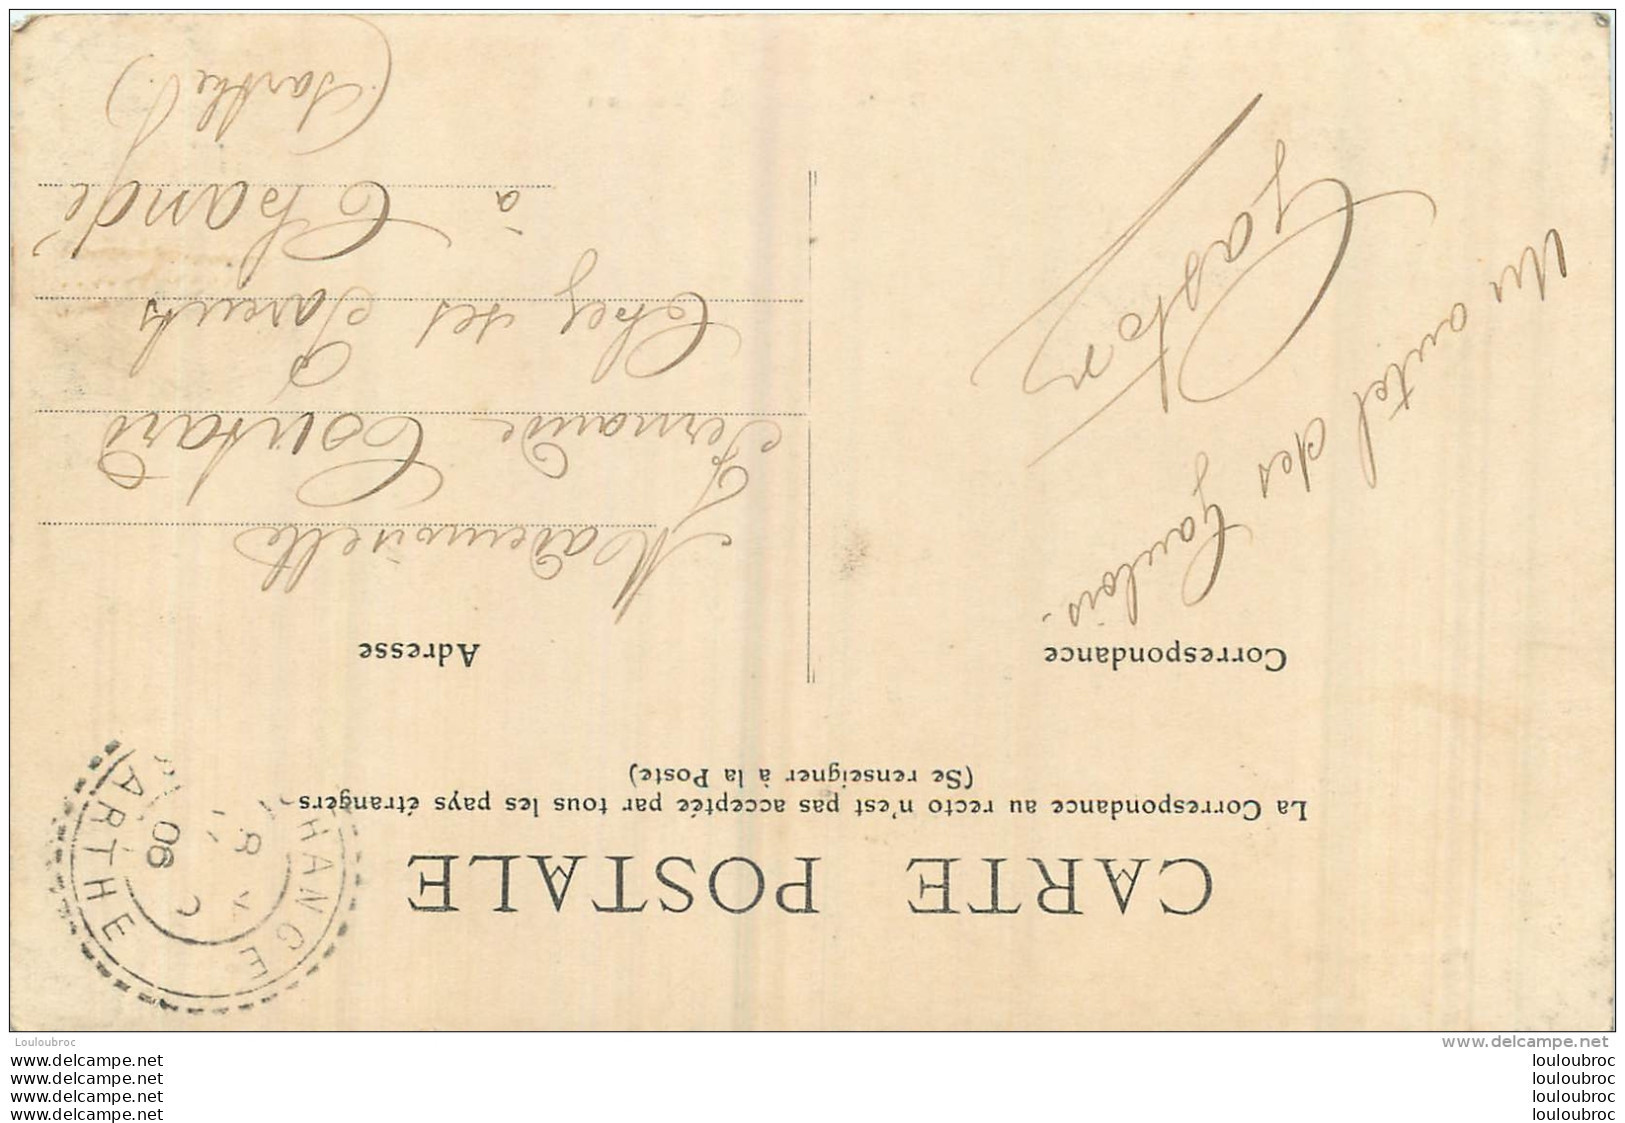 CARTE POSTALE
La Correspondance au recto n'est pas acceptée par tous les pays étrangers
(Se renseigner à la Poste)
Correspondance
Adresse
Un autel des Gaulois.
Gaston
Mademoiselle
Fernande Coutard
Chez ses Parents
à Changé
(Sarthe)
CHANGE
SARTHE
8
06
Louloubroc
www.delcampe.net
www.delcampe.net
www.delcampe.net
www.delcampe.net
www.delcampe.net
louloubroc
louloubroc
louloubroc
louloubroc